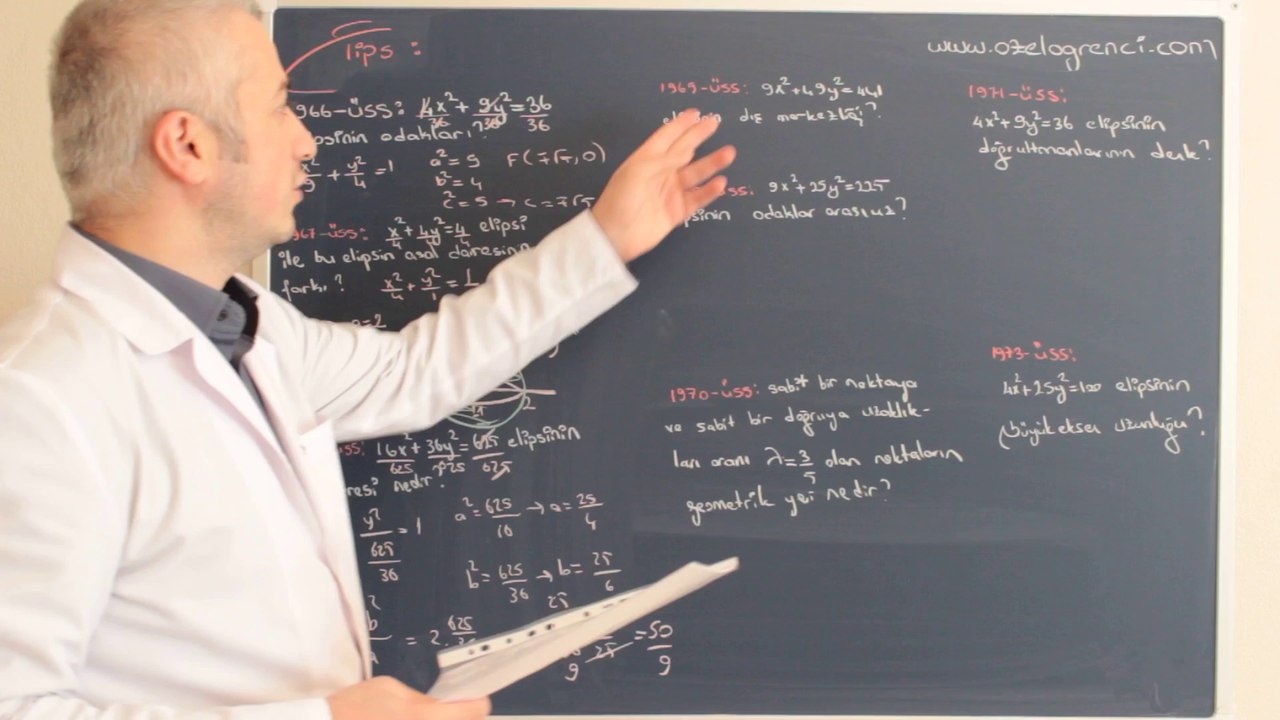 lips :
www.ozelogrenci.com
966-ÜSS: 4x²/36 + 9y²/36 = 36/36
psinin odakları?
x²/9 + y²/4 = 1 a² = 9 F(∓√5, 0)
b² = 4
c² = 5 → c = ∓√5
967-ÜSS: x²/4 + 4y²/4 = 4/4 elipsi
ile bu elipsin asal dairesinin
farkı? x²/4 + y²/1 = 1
a = 2
2
ÜSS: 16x²/625 + 36y²/625 = 625/625 elipsinin
resi nedir?
y²/(625/36) = 1 a² = 625/16 → a = 25/4
b² = 625/36 → b = 25/6
= 2. 625/36 25 = 50/9
1969-ÜSS: 9x²+49y²=441
elipsinin dış merkezliği?
ÜSS: 9x²+25y²=225
psinin odaklar arası uz?
1970-ÜSS: sabit bir noktaya
ve sabit bir doğruya uzaklık-
ları oranı λ=3/5 olan noktaların
geometrik yeri nedir?
1971-ÜSS:
4x²+9y²=36 elipsinin
doğrultmanlarının denk?
1973-ÜSS:
4x²+25y²=100 elipsinin
büyük eksen uzunluğu?